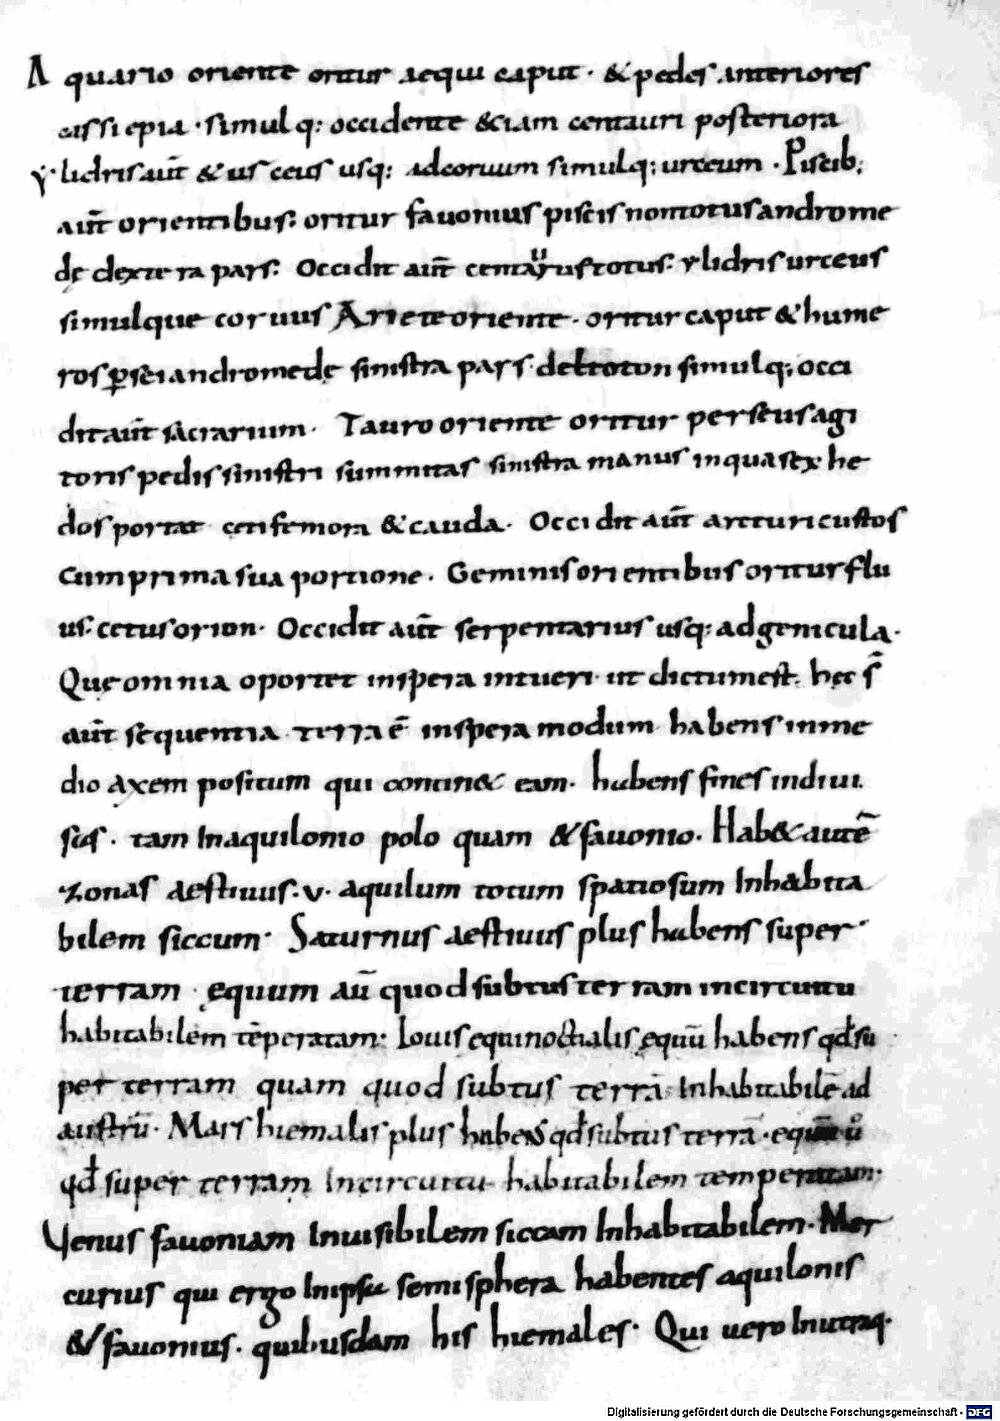 Aquario oriente oritur aequi caput · & pedes anteriores
cassiepia · simul q: occidente &iam centauri posteriora
ylidris aūt & us ceus usq: adcoruum simulq: urceum · Piscib;
aūt orientibus: oritur fauonius piscis nomotus androme
dę dextera pars: Occidit aūt centaurus totus: ylidris urceus
simulque coruus Ariete oriente · oritur caput & hume
ros ꝑsei andromedę sinistra pars · deltoton simulq; occi
dit aūt sacrarium · Tauro oriente oritur perseus agi
toris pedis sinistri summitas sinistra manus in qua sex he
dos portat ceti femora & cauda · Occidit aūt arcturi custos
cum prima sua portione · Geminis orientibus oritur flu
us · cetus orion · Occidit aūt serpentarius usq: ad genicula ·
Quę omnia oportet inspera intueri · ut dictum est · hęc s̄
aūt sequentia · terra ē inspera modum habens inme
dio axem positum qui contin& eam · habens fines indiui
sos · tam In aquilonio polo quam & fauonio · Hab& autē
zonas aestiuus · v · aquilum totum spatiosum Inhabita
bilem siccum · Saturnus aestiuus plus habens super
terram · ęquum aū quod subtus terram incircuitu
habitabilem tēperatam: Iouis equinoctialis ęquū habens qđ su
per terram quam quod subtus terrā Inhabitabilē ad
austrū · Mars hiemalis plus habens qđ subtus terrā · equum ů
qđ super terram Incircuitu habitabilem temperatam ·
Venus fauoniam Inuisibilem siccam Inhabitabilem · Mer
curius qui ergo Inipsa semisphera habentes aquilonis
& fauonius · quibusdam his hiemales · Qui uero Inutraq ·
Digitalisierung gefördert durch die Deutsche Forschungsgemeinschaft - DFG